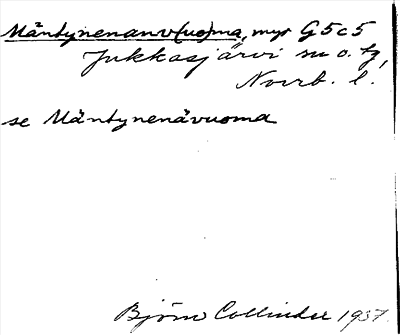 Mäntynenanv(uo)ma, myr G5c5
Jukkasjärvi sn o. tg,
Norrb. l.
se Mäntynenävuoma
Björn Collinder 1937